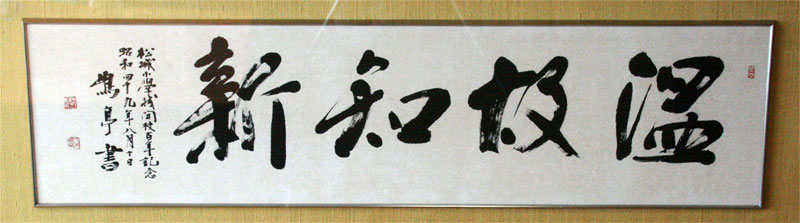 溫故知新
松城小學校開校百年記念
昭和四十九年八月十日
鶯亭書